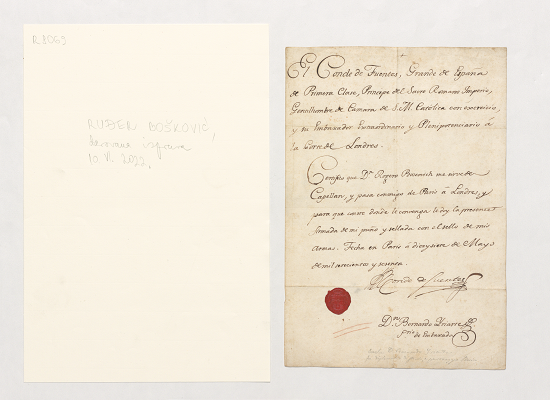 R 8069
RUĐER BOŠKOVIĆ,
10. VI. 2022.
El Conde de Fuentes, Grande de España
de Primera Clase, Principe del Sacro Romano Imperio,
Gentilhombre de Camara de S. M. Catolica con exercicio,
y su Embaxador Extraordinario y Plenipotenciario á
la Corte de Londres.
Certifico que Dn. Rogero Boscovich me sirve de
Capellan, y pasa conmigo de Paris á Londres, y
para que conste donde le convenga le doy la presente
firmada de mi puño y sellada con el sello de mis
armas. Fecha en Paris á diez y siete de Mayo
de mil setecientos y sesenta.
El Conde de Fuentes
Dn. Bernardo Yriarte
Srio. de Embaxada